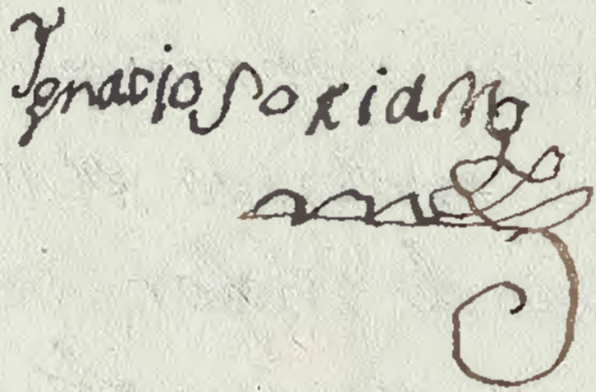 Ygnacio Soriano